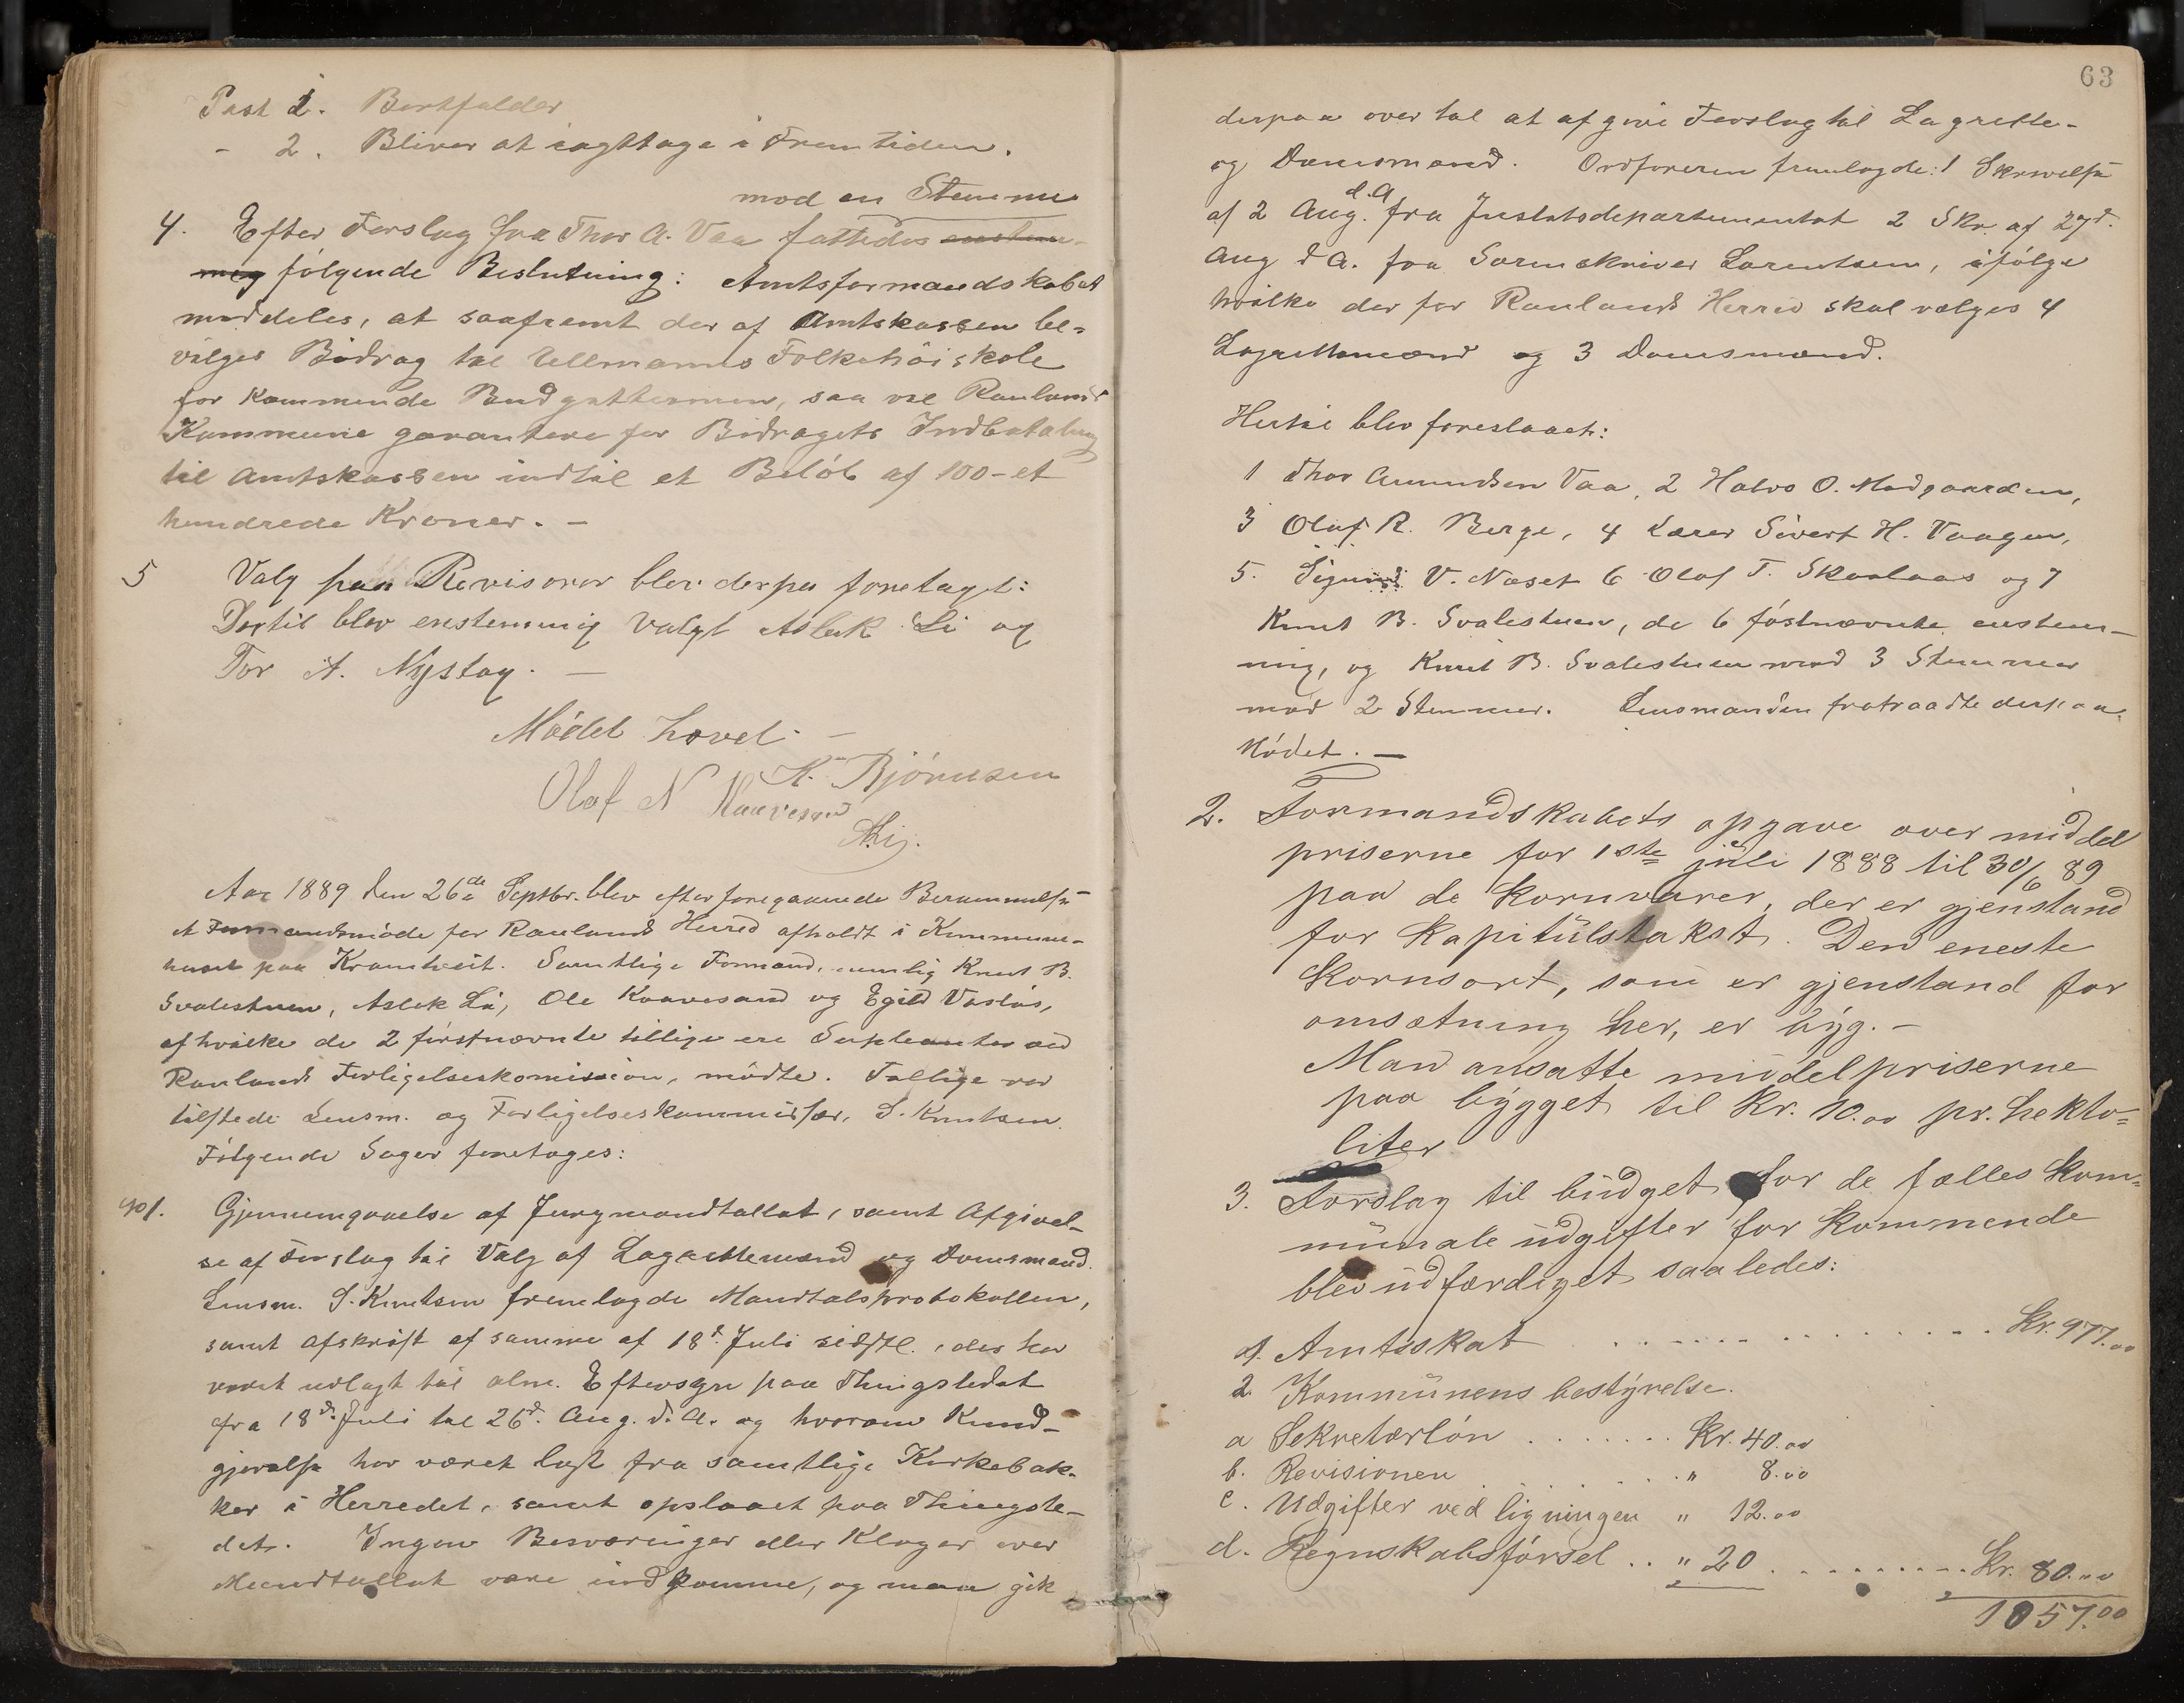 Post 1. Bortfalder
- 2. Bliver at iagttage i Fremtiden.
mod en Stemme
4. Efter Forslag fra Thor A. Vaa fattedes enstem-
mig følgende Beslutning: Amtsformandskabet
meddeles, at saafremt der af Amtskassen be-
vilges Bidrag til Ullmanns Folkehöiskole
for kommende Budgettermin, saa vil Raulands
Kommune garantere for Bidragets Indbetaling
til Amtskassen indtil et Beløb af 100 - et
hundrede Kroner. -
5 Valg paa Revisorer blev derpaa foretaget:
Dertil blev enstemmig valgt Aslak Li og
Tor A. Nystog. -
Mödet hævet. -
K. Bjørnsen
Olaf N Kaavesand
ALi.
Aar 1889 den 26de Septbr. blev efter foregaaende Berammelse
et Formandsmöde for Raulands Herred afholdt i Kommune-
huset paa Kromtveit. Samtlige Formænd, nemlig Knut B.
Svalestuen, Aslak Li, Ole Kaavesand og Egild Vaslös,
af hvilke de 2 førstnævnte tillige ere Suppleanter ved
Raulands Forligelseskomission, mødte. Tillige var
tilstede Lensm. og Forligelseskommissær, S. Knutsen.
Følgende Sager foretoges:
No 1. Gjennemgaaelse af Jurymandtallet, samt Afgivel-
se af Forslag til Valg af Lagrettemænd og Domsmænd.
Lensm. S. Knutsen fremlagde Mandtalsprotokollen,
samt Afskrift af samme af 18d. Juli sidstl., der har
været udlagt til alm. Eftersyn paa Thingstedet
fra 18d. Juli til 26d. Aug. d. A. og hvorom Kund-
gjørelse har været læst fra samtlige Kirkebak-
ker i Herredet, samt opslaaet paa Thingste-
det. Ingen Besværinger eller Klager over
Mandtallet vare indkomne, og man gik
63
derpaa over til at afgive Forslag til Lagrette-
og Domsmænd. Ordføreren fremlagde: 1 Skrivelse
af 2 Aug. d. A. fra Justitsdepartementet 2 Skr. af 27d.
Aug d A. fra Sorenskriver Lorentsen, ifølge
hvilke der for Raulands Herred skal vælges 4
Lagrettemænd og 3 Domsmænd.
Hertil blev foreslaaet:
1 Thor Amundsen Vaa, 2 Halvo O. Midgaarden,
3 Olaf R. Berge, 4 Lærer Sivert H. Vaagen,
5. Sigurd V. Næset 6 Olaf T. Skaalaas og 7
Knut B. Svalestuen, de 6 förstnævnte enstem-
mig, og Knut B. Svalestuen med 3 Stemmer
mod 2 Stemmer. Lensmanden fratraadte derpaa
Mödet. -
2. Formandskabets opgave over middel
priserne for 1ste juli 1888 til 30/6 89
paa de Kornvarer, der er gjenstand
for Kapitulstakst. Den eneste
Kornsort, som er gjenstand for
omsætning her, er byg. -
Man ansatte middelpriserne
paa bygget til Kr. 10.00 pr. hekto-
liter
3. Forslag til budget for de fælles kom-
munale udgifter for kommende
blev udfærdiget saaledes:
1. Amtsskat . . . . . . . . . . Kr. 977.00
2. Kommunens bestyrelse.
a Sekretærlön . . . . . . . Kr. 40.00
b. Revisionen . . . . " 8.00
c. Udgifter ved ligningen " 12.00
d. Regnskabsförsel . . " 20 . . . . . . . . . Kr. 80.00
1057.00